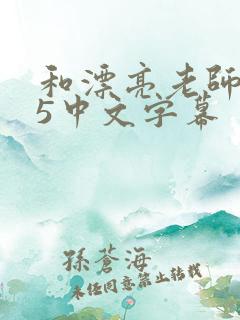 和漂亮老師
5中文字幕
孫蒼海
未经同意禁止转载